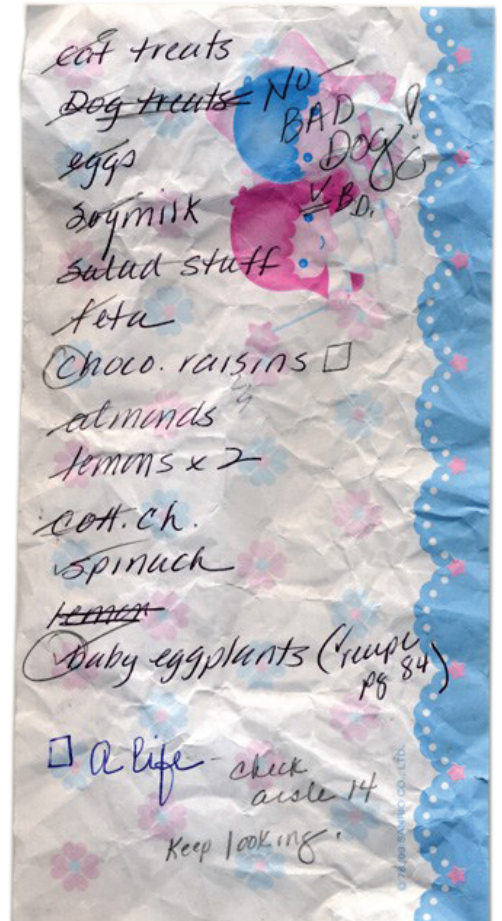 cat treats
Dog treats NO
BAD
DOG!
B.D.
eggs
soymilk
salad stuff
feta
choco. raisins
almonds
lemons x 2
cott. ch.
spinach
lemon
baby eggplants (recipe
pg 84)
a life - check
aisle 14
Keep looking.
© '76, '99 SANRIO CO., LTD.